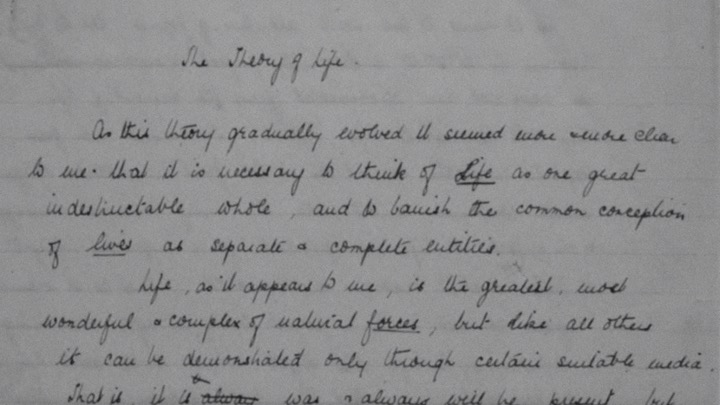 The Theory of Life.
As this theory gradually evolved it seemed more & more clear
to me. that it is necessary to think of Life as one great
indestructable whole, and to banish the common conception
of lives as separate & complete entities.
Life, as it appears to me, is the greatest, most
wonderful & complex of natural forces, but like all others
it can be demonstrated only through certain suitable media.
That is, it is always was & always will be present, but